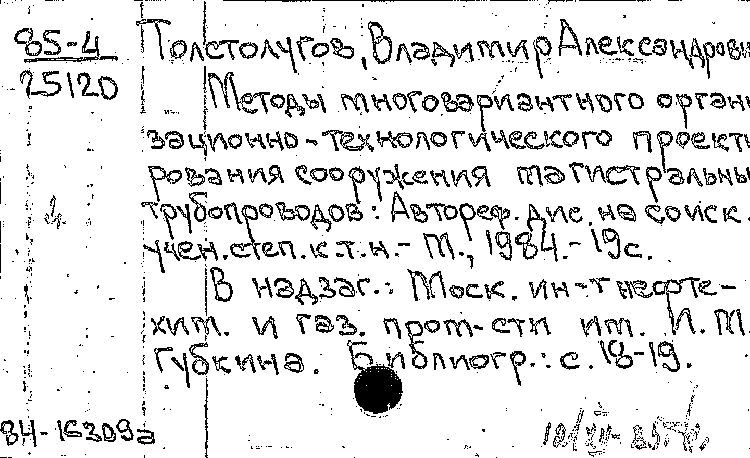 85-4
25120
Толстолугов, Владимир Александрови
Методы многовариантного органи
зационно-технологического проекти
рования сооружения магистральны
трубопроводов: Автореф. дис. на соиск.
учен. степ. к.т.н. - М., 1984. - 19с.
В надзаг.: Моск. ин-т нефте-
хим. и газ. пром-сти им. И.М.
Губкина. Библиогр.: с. 18-19.
84-16309а